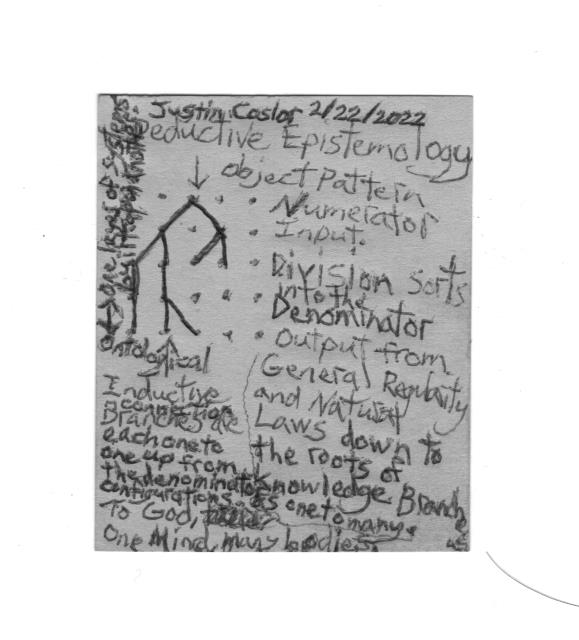 Justin Coslor 2/22/2022
Deductive Epistemology
Object Pattern
Numerator
Input.
Division Sorts
Into the
Denominator
Output from
General Regularity
and Natural
Laws down to
the roots of
Knowledge Branch
as one to many.
Ontological
Inductive
connection
Branches are
each one to
one up from
the denominator
configurations.
To God,
One Mind, many bodies.
layers of systems
built upon another.